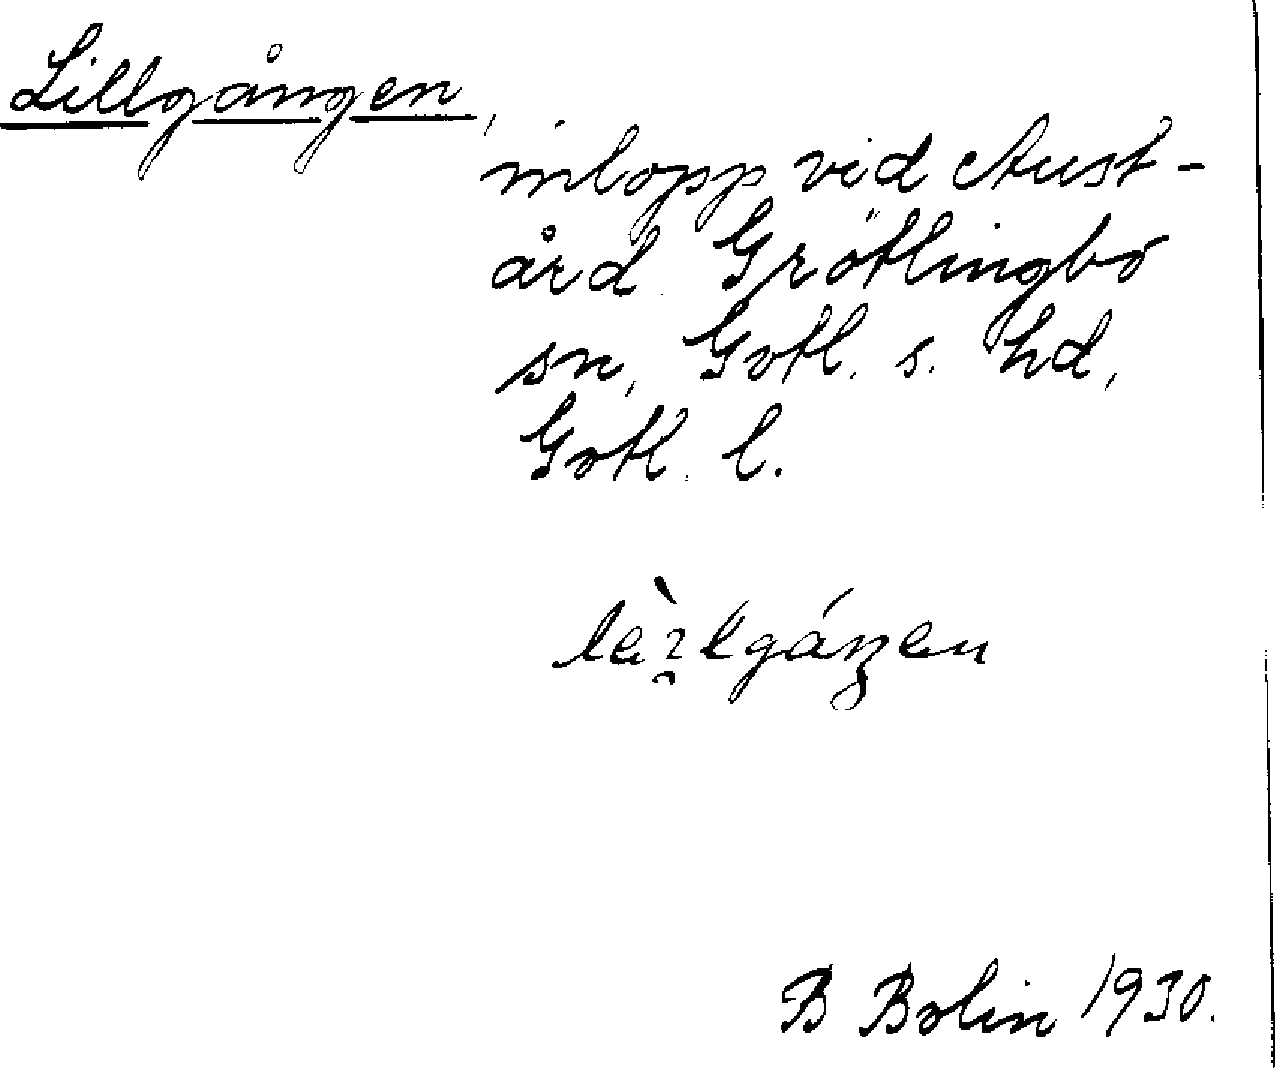 Lillgången,
inlopp vid Aust-
ård Grötlingbo
sn, Gotl. s. hd,
Gotl. l.
B Bolin 1930.